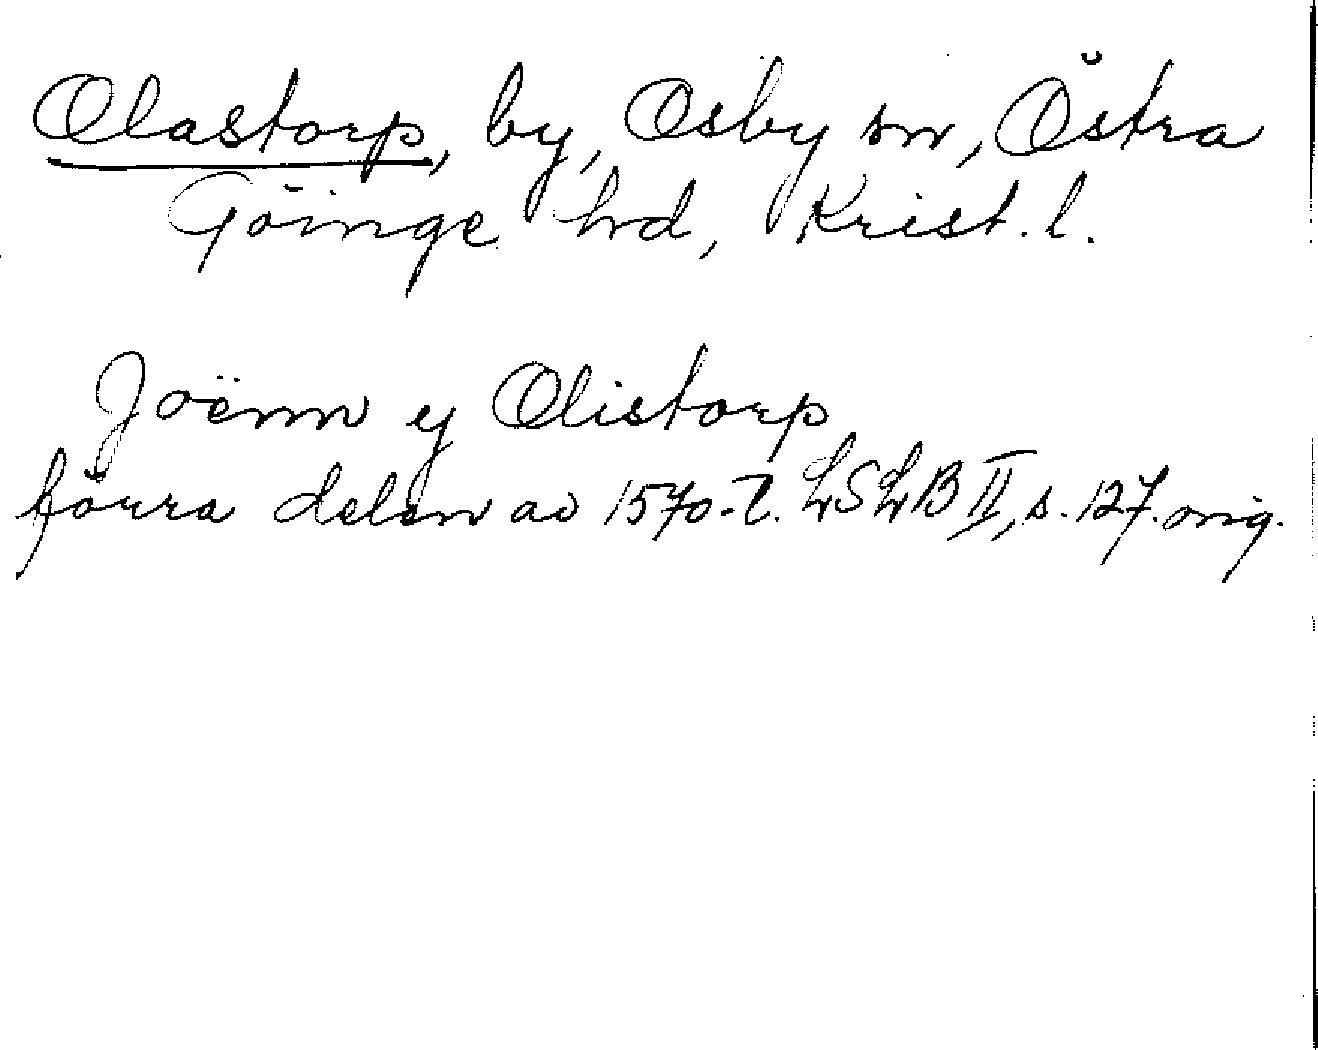 Olastorp, by, Osby sn, Östra
Göinge hrd, Krist. l.
Joënn y Olistorp
förra delen av 1570-t. LSLB II, s. 127. orig.